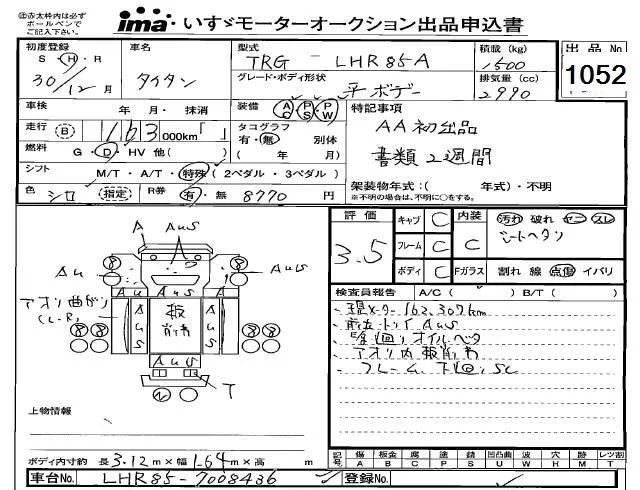 ㊟赤太枠内は必ず
ボールペンで
ご記入下さい。
ima いすゞモーターオークション出品申込書
初度登録 車名 型式 積載 (kg) 出品 No
S・H・R TRG - LHR85-A 1500
30/12月 タイタン グレード・ボディ形状 排気量 (cc) 1052
平ボデー 2990
車検 年 月・抹消 装備 AC PS PW 特記事項
走行 (B) 163,000km「 」 タコグラフ AA初出品
有・無 別体
燃料 G・D・HV 他( ) ( 年 月) 書類2週間
シフト M/T・A/T・特殊 ( 2ペダル・3ペダル )
色 シロ 指定 R券 有・無 8770 円 架装物年式：( 年式)・不明
※不明の場合は、不明に○をする。
評価 キャブ C 内装 汚れ 破れ ヤニ スレ
3.5 フレーム C C シートヘタリ
ボディ C Fガラス 割れ 線 点傷 イバリ
A AuS
A
Au AuS
検査員報告 A/C ( ) B/T ( )
A u A u S
現メーター 162,307km
アオリ曲がり
(L・R)
AuS 板 AuS
AuS
オイル
アオリ内板
フレーム下回りSC
T
上物情報
ボディ内寸約 長 3.12m×幅 1.64m×高 m
記号 傷 板金 腐 塗 錆 凹凸曲 波 穴 跡 レツ割
A B C P S U W H M T
車台No. LHR85-7008436 登録No.